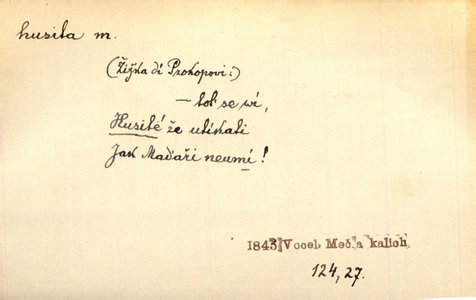 husita m.
(Žižka dí Prokopovi:)
— toť se ví,
Husité že utíkati
Jak Maďaři neumí!
1843 Vocel. Meč a kalich
124, 27.